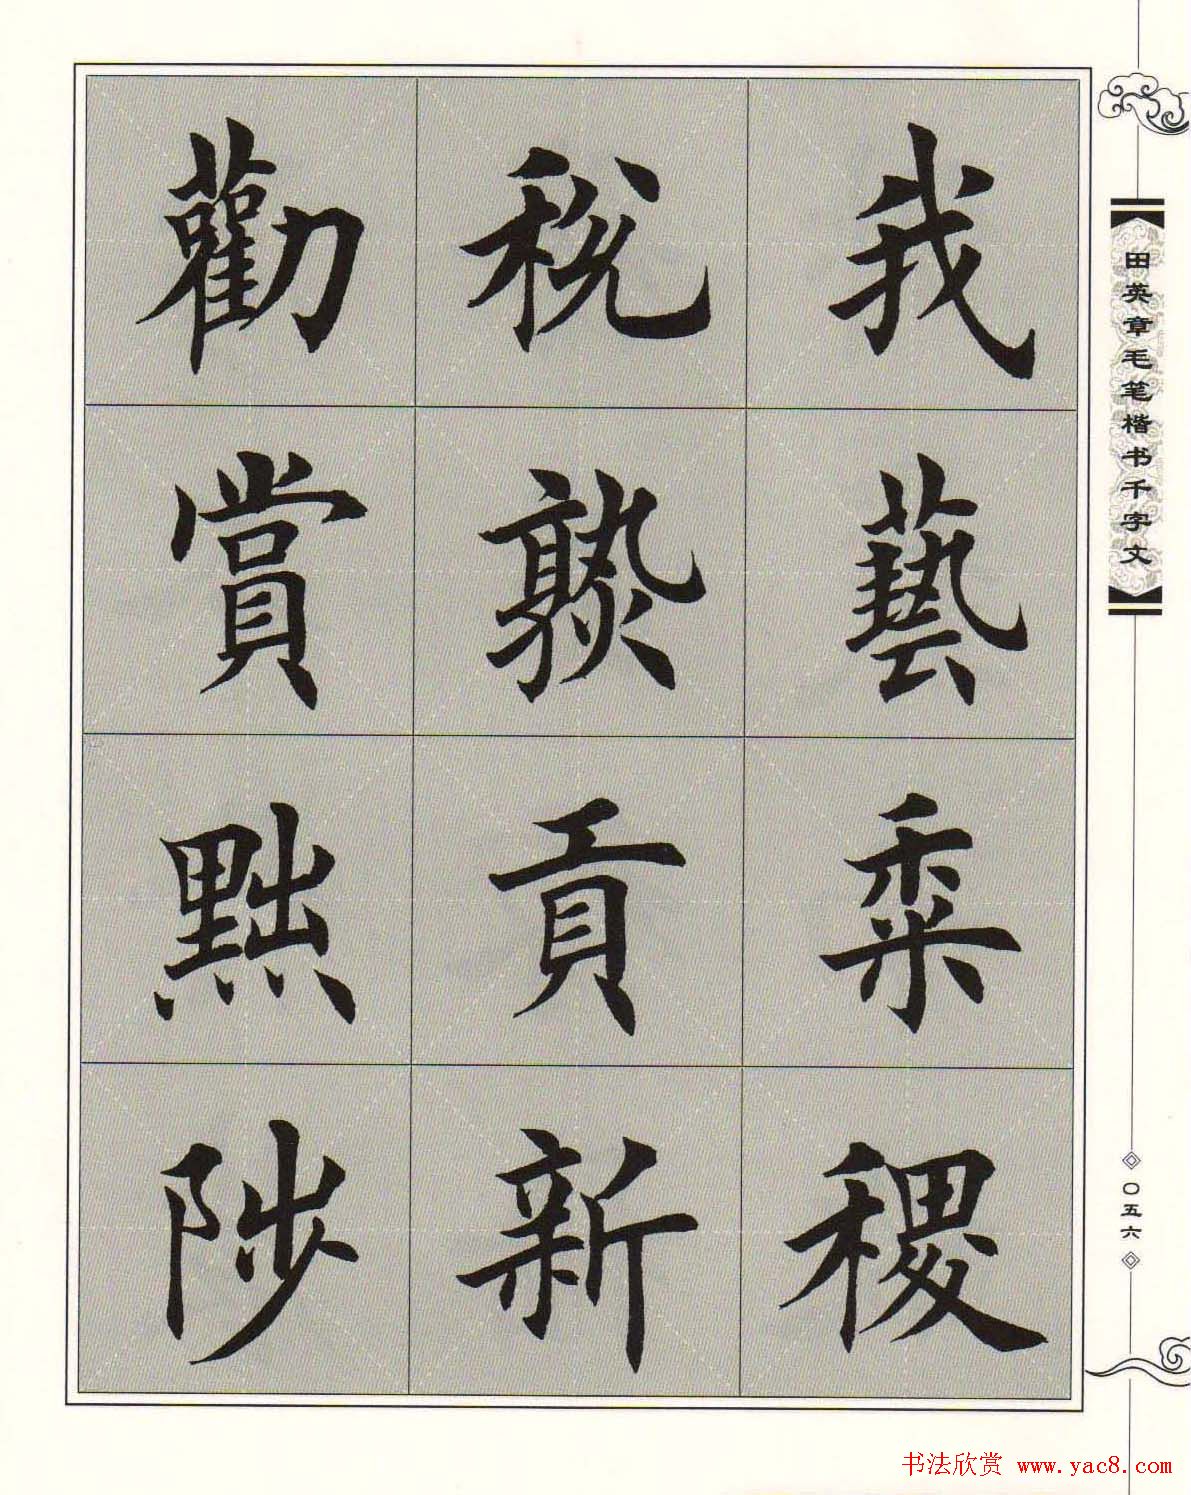 我藝黍稷
税熟貢新
勸賞黜陟
田英章毛笔楷书千字文
〇五六
书法欣赏 www.yac8.com